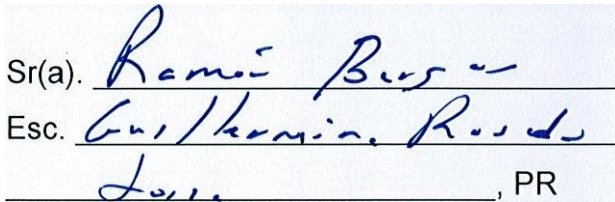 Sr(a). Ramón Burgos
Esc. Guillermina Rosado
, PR